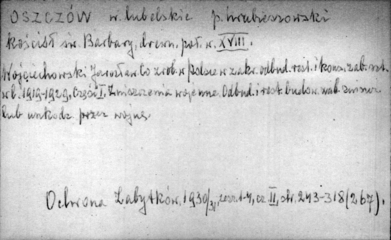 OSZCZÓW w. lubelskie p. hrubieszowski
Kościół św. Barbary, drewn. poł. w. XVIII.
Wojciechowski Jarosław Co zrob. w Polsce w zakr. odbud. rest. i kons. zab. szt.
w l. 1919-1929. Część I. Zniszczenia wojenne. Odbud. i rest. budow. zab. zniszcz.
lub uszkodz. przez wojnę.
Ochrona Zabytków. 1930/31, zesz. 1-4, cz. II, str. 243-318 (267).